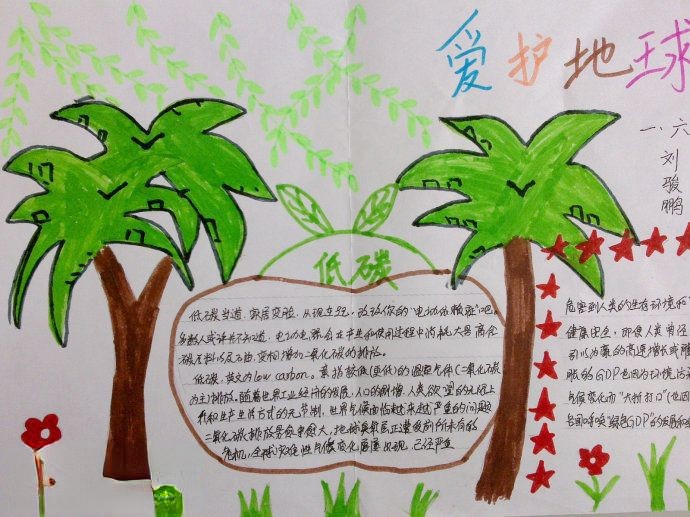 爱护地球
一.六
刘
骏
鹏
低碳
低碳当道,家居交验,从现在起,改改你的“电动幼稚症”吧。
多数人或许并不知道,电动电器会在产生和使用过程中消耗大量高含
碳原料以及石油,变相增加二氧化碳的排放。
低碳,英文为low carbon。意指较低(更低)的温室气体(二氧化碳
为主)排放,随着世界工业经济的发展、人口的剧增、人类欲望的无限上
升和生产生活方式的无节制,世界气候面临越来越严重的问题
二氧化碳排放量愈来愈大,地球臭氧层正遭受前所未有的
危机,全球灾难性气候变化屡屡出现,已经严重
危害到人类的生存环境和
健康安全,即使人类曾经
引以为豪的高速增长或膨
胀的GDP也因为环境污染
气候变化而“大打折扣”(也因
各国呼唤“绿色GDP”的发展